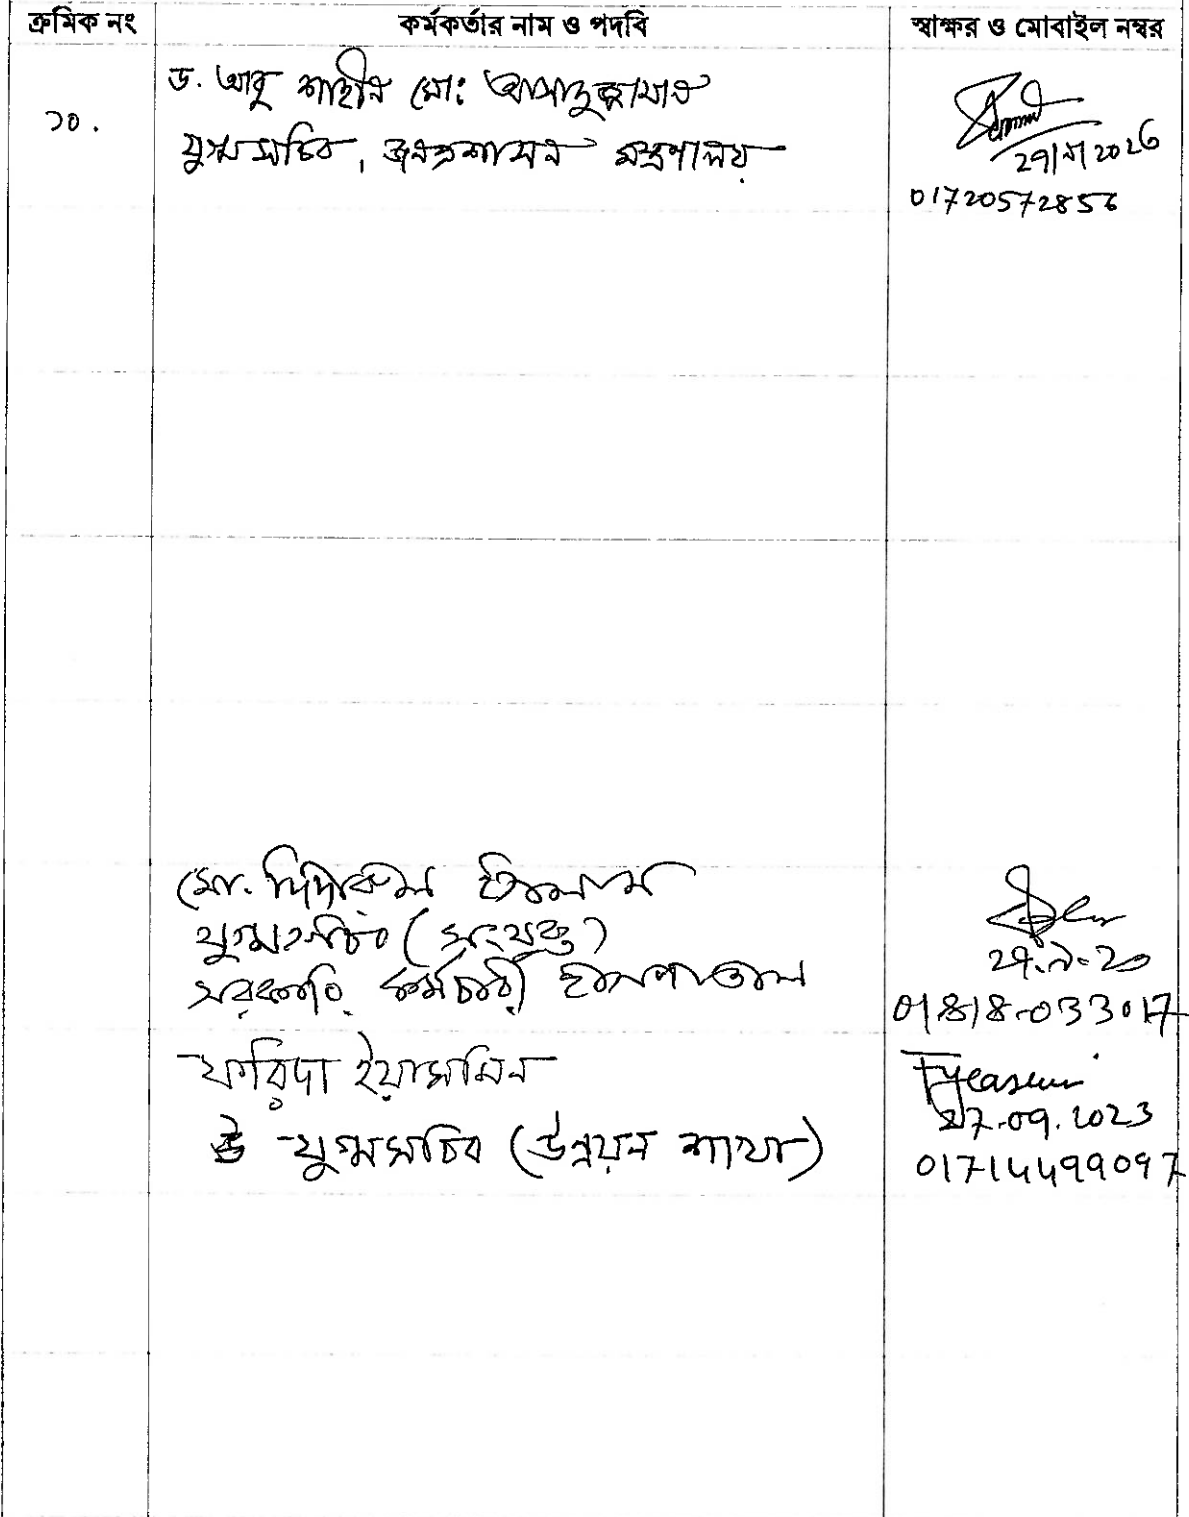 ক্রমিক নং কর্মকর্তার নাম ও পদবি স্বাক্ষর ও মোবাইল নম্বর
১০. ড. আবু শাহীন মো: আসাদুজ্জামান
যুগ্মসচিব, জনপ্রশাসন মন্ত্রণালয়
01720572856
মো. দিদারুল ইসলাম
যুগ্মসচিব (সংযুক্ত)
সরকারি কর্মচারী হাসপাতাল
01818-033017
ফরিদা ইয়াসমিন
যুগ্মসচিব (উন্নয়ন শাখা)
Fyeasmin
27.09.2023
01714499097